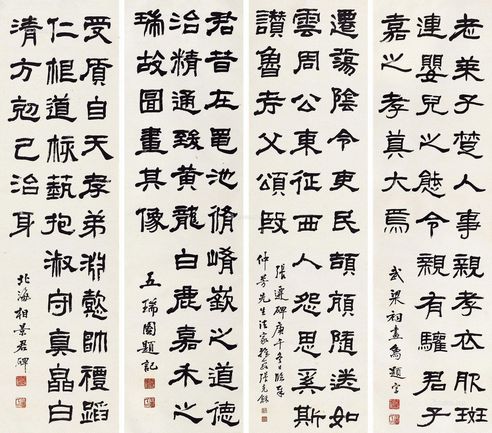 老萊子楚人事親孝衣服斑
連嬰兒之態令親有驩君子
嘉之孝莫大焉
武梁祠畫象題字
遷蕩陰令吏民頡頏隨送如
雲周公東征西人怨思奚斯
讚魯考父頌殷
張遷碑庚午冬日臨奉
仲芳先生法家
君昔在黽池脩崤嶔之道德
治精通致黃龍白鹿嘉禾之
瑞故圖畫其像
五瑞圖題記
受質自天孝弟淵懿帥禮蹈
仁根道核藝抱淑守真皛白
清方剋己治身
北海相景君碑